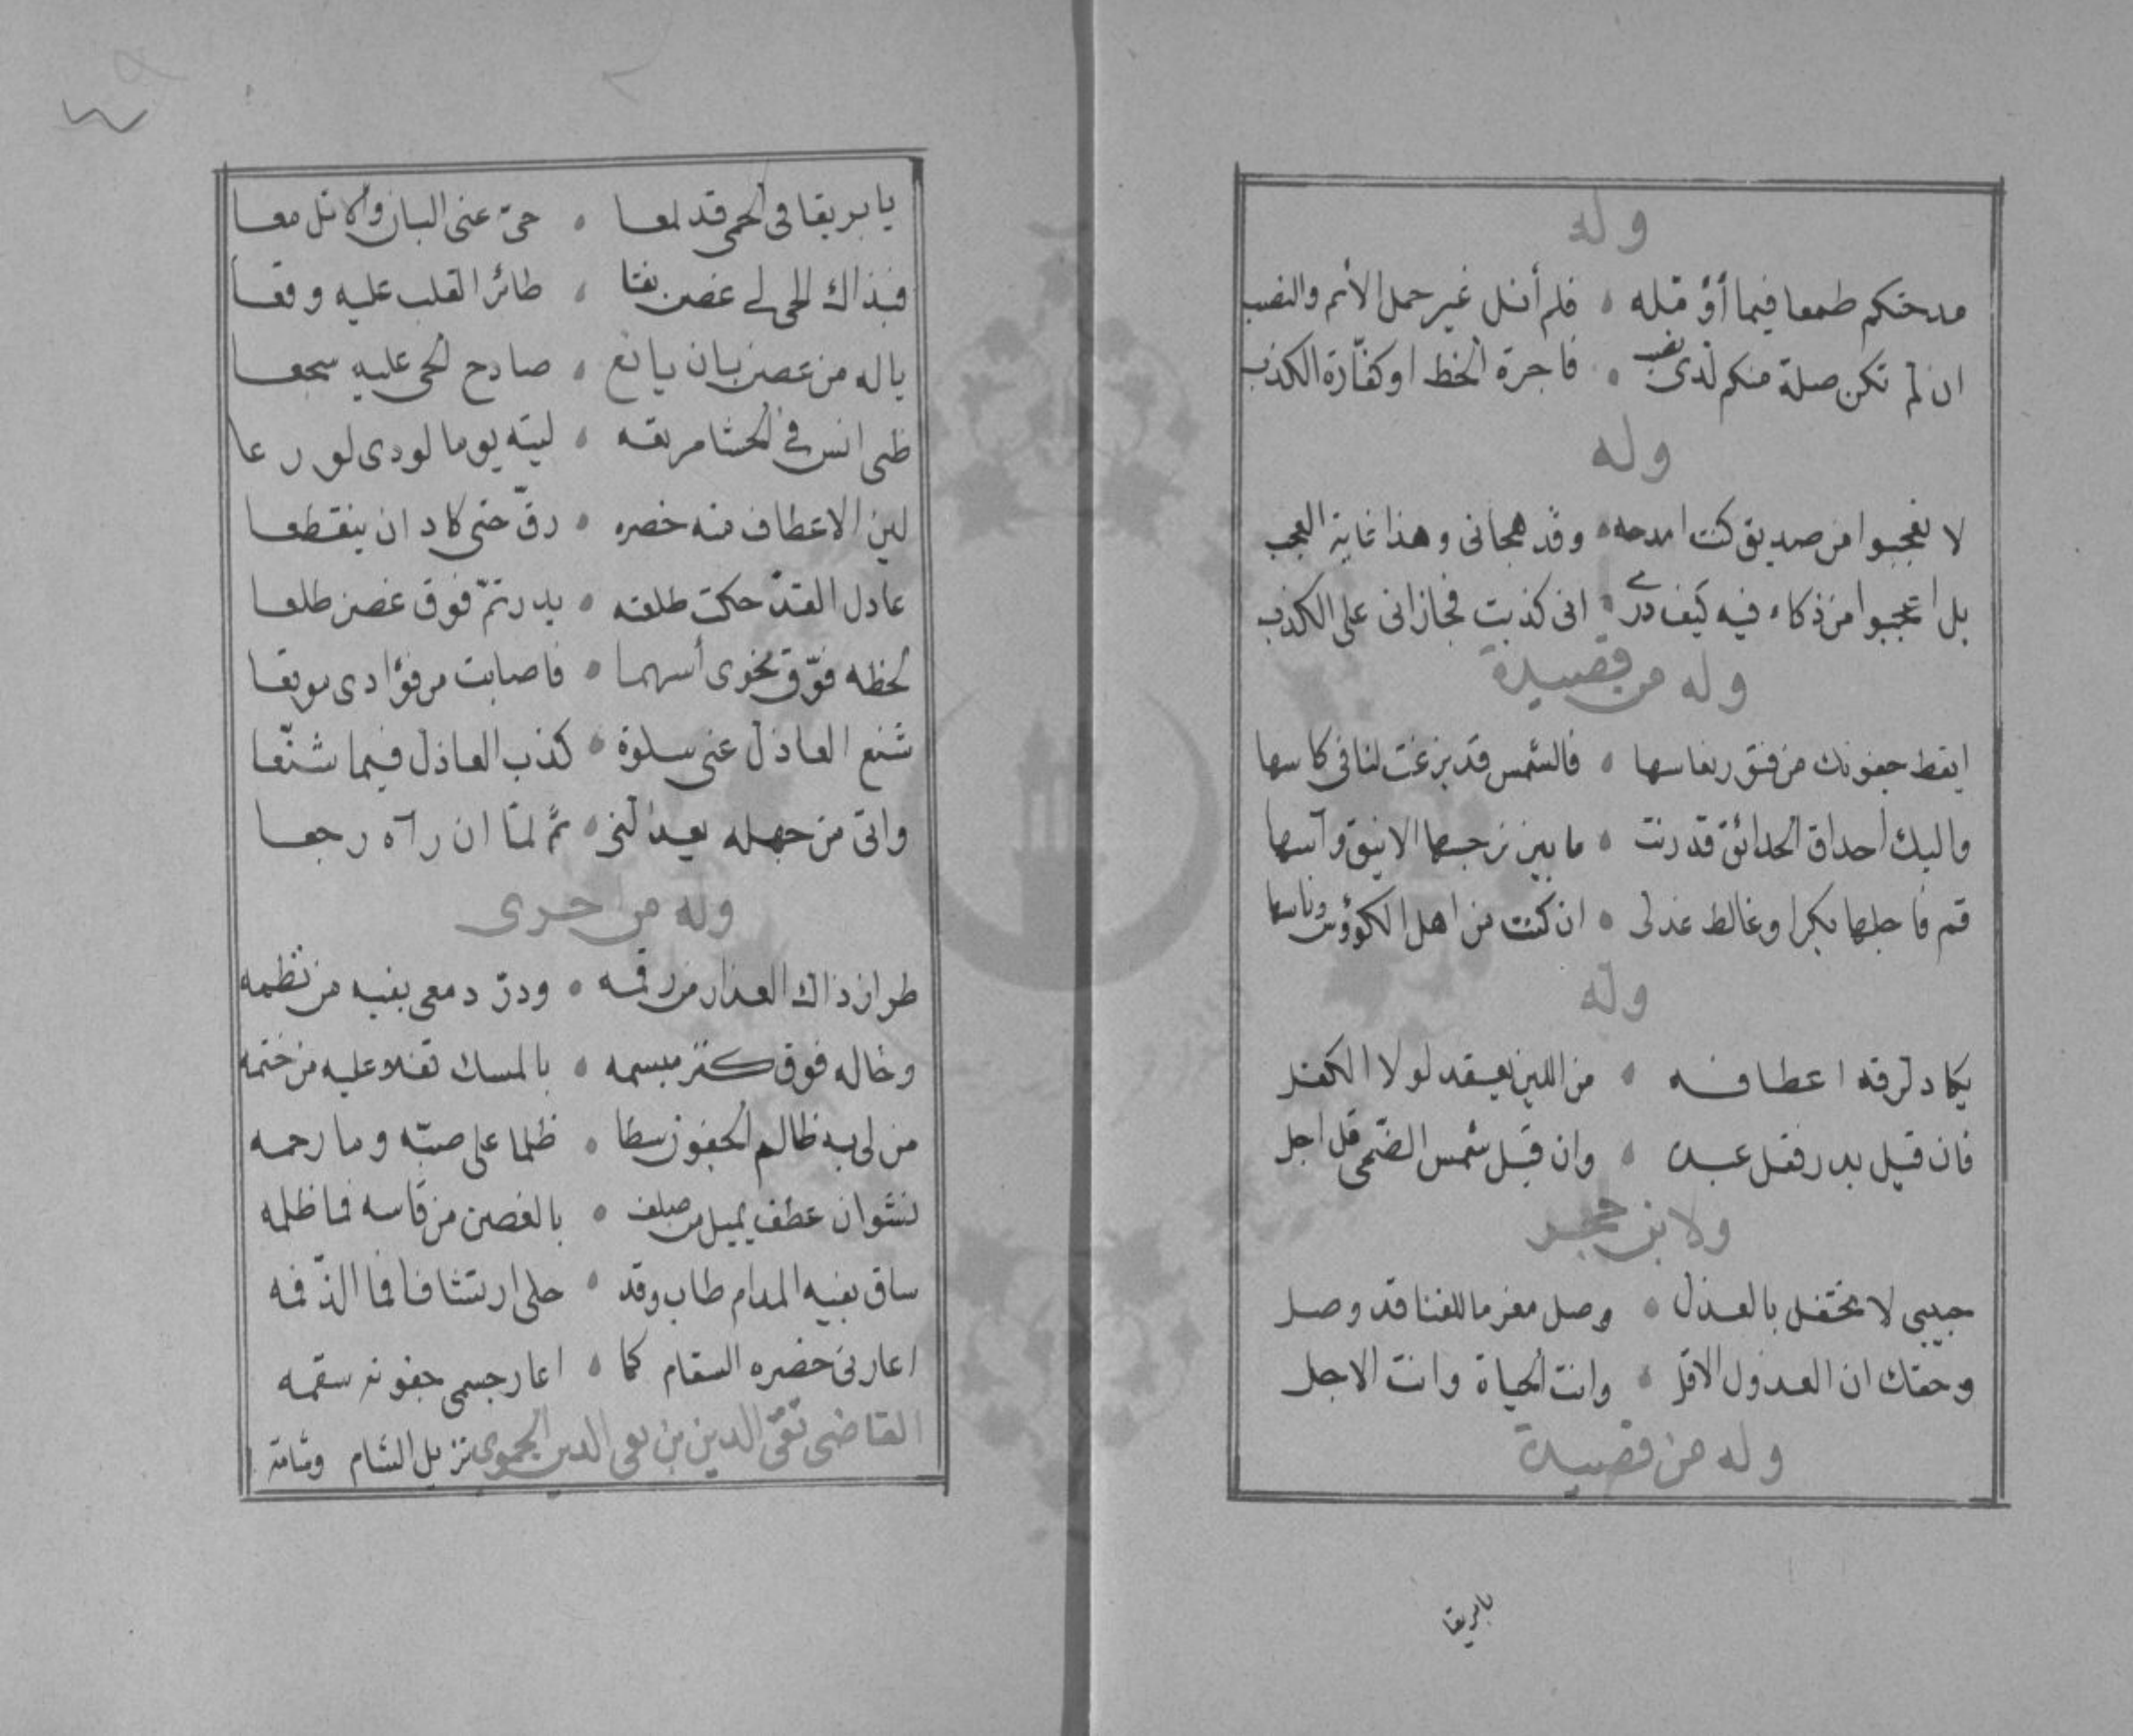 وله
مدحتكم طمعا فيما أؤمله ، فلم أنل غير حمل الأثم والنصب
ان لم تكن صلة منكم لذى نصب ، فاجرة الخط او كفّارة الكذب
وله
لا تعجبوا من صديق كنت امدحه ، وقد هجانى وهذا غاية العجب
بل اعجبوا من ذكاء فيه كيف درى ، انى كذبت فجازانى على الكذب
وله من قصيدة
ايقظ جفونك من فتور نعاسها ، فالشمس قد بزغت لنا فى كاسها
واليك أحداق الحدائق قد رنت ، ما بين نرجسها الانيق وآسها
قم فاجلها بكرا وغالط عذلى ، ان كنت من اهل الكوؤس وناسها
وله
يكاد لرقة اعطافه ، من اللين يعقد لولا الكفل
فان قيل بدر فقل عبده ، وان قيل شمس الضحى قل اجل
ولابن حجر
حبيبى لا تحتفل بالعذل ، وصل مغرما للفنا قد وصل
وحقك ان العذول الاقل ، وانت الحياة وانت الاجل
وله من قصيدة
يابريقا
يا بريقا فى الحمى قد لمعا ، حىّ عنى البان والاثل معا
فبذاك الحى لى غصن نقا ، طائر القلب عليه وقعا
ياله من غصن بان يانع ، صادح الحى عليه سجعا
ظبى انس فى الحشا مربعه ، ليته يوما لودى لو رعا
لين الاعطاف منه خصره ، رقّ حتى كاد ان ينقطعا
عادل القدّ حكت طلعته ، بدر تمّ فوق غصن طلعا
لحظه فوّق نحوى أسهما ، فاصابت من فؤادى موقعا
شنع العاذل عنى سلوة ، كذب العاذل فيما شنّعا
واتى من جهله يعذلنى ، ثم لمّا ان رآه رجعا
وله من اخرى
طراز ذاك العذار من رقمه ، ودرّ دمعى بفيه من نظمه
وخاله فوق كنز مبسمه ، بالمسك تفلا عليه من ختمه
من لى به ظالم الجفون سطا ، ظلما على صبّه وما رحمه
نشوان عطف يميل من صلف ، بالغصن من قاسه فما ظلمه
ساق بفيه المدام طاب وقد ، حلى ارتشافا فما الذّ فمه
اعارنى خصره السقام كما ، اعار جسمى جفونه سقمه
القاضى تقى الدين بن تقى الدين الحموى نزيل الشام وشامة